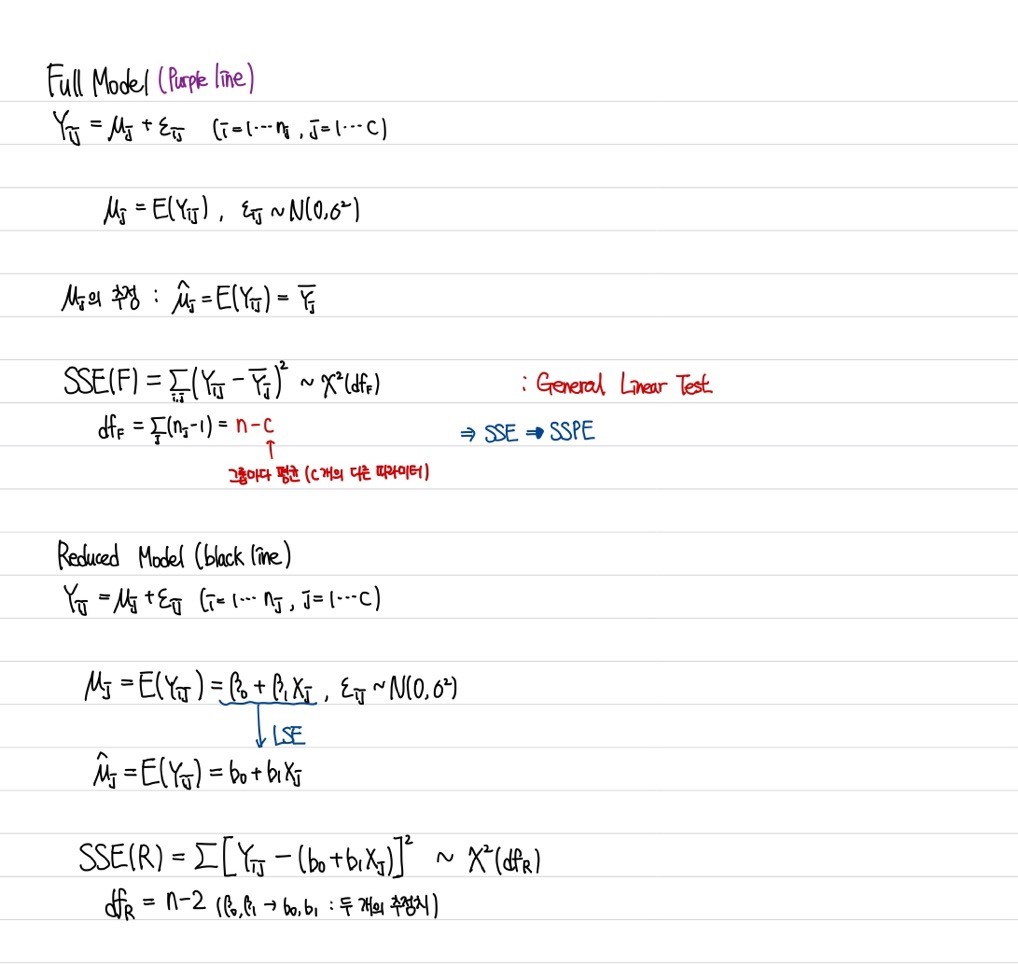 Full Model (Purple line)
Yij = μj + εij (i=1⋯nj, j=1⋯c)
μj = E(Yij), εij ~ N(0,σ²)
μj의 추정 : μ̂j = E(Yij) = Ȳj
SSE(F) = Σi,j(Yij − Ȳj)² ~ χ²(dfF) : General Linear Test
dfF = Σj(nj−1) = n−c ⇒ SSE ➡ SSPE
↑
그룹마다 평균 (c개의 다른 파라미터)
Reduced Model (black line)
Yij = μj + εij (i=1⋯nj, j=1⋯c)
μj = E(Yij) = β0 + β1Xj, εij ~ N(0,σ²)
↓ LSE
μ̂j = E(Yij) = b0 + b1Xj
SSE(R) = Σ[Yij − (b0+b1Xj)]² ~ χ²(dfR)
dfR = n−2 (β0,β1 → b0,b1 : 두 개의 추정치)